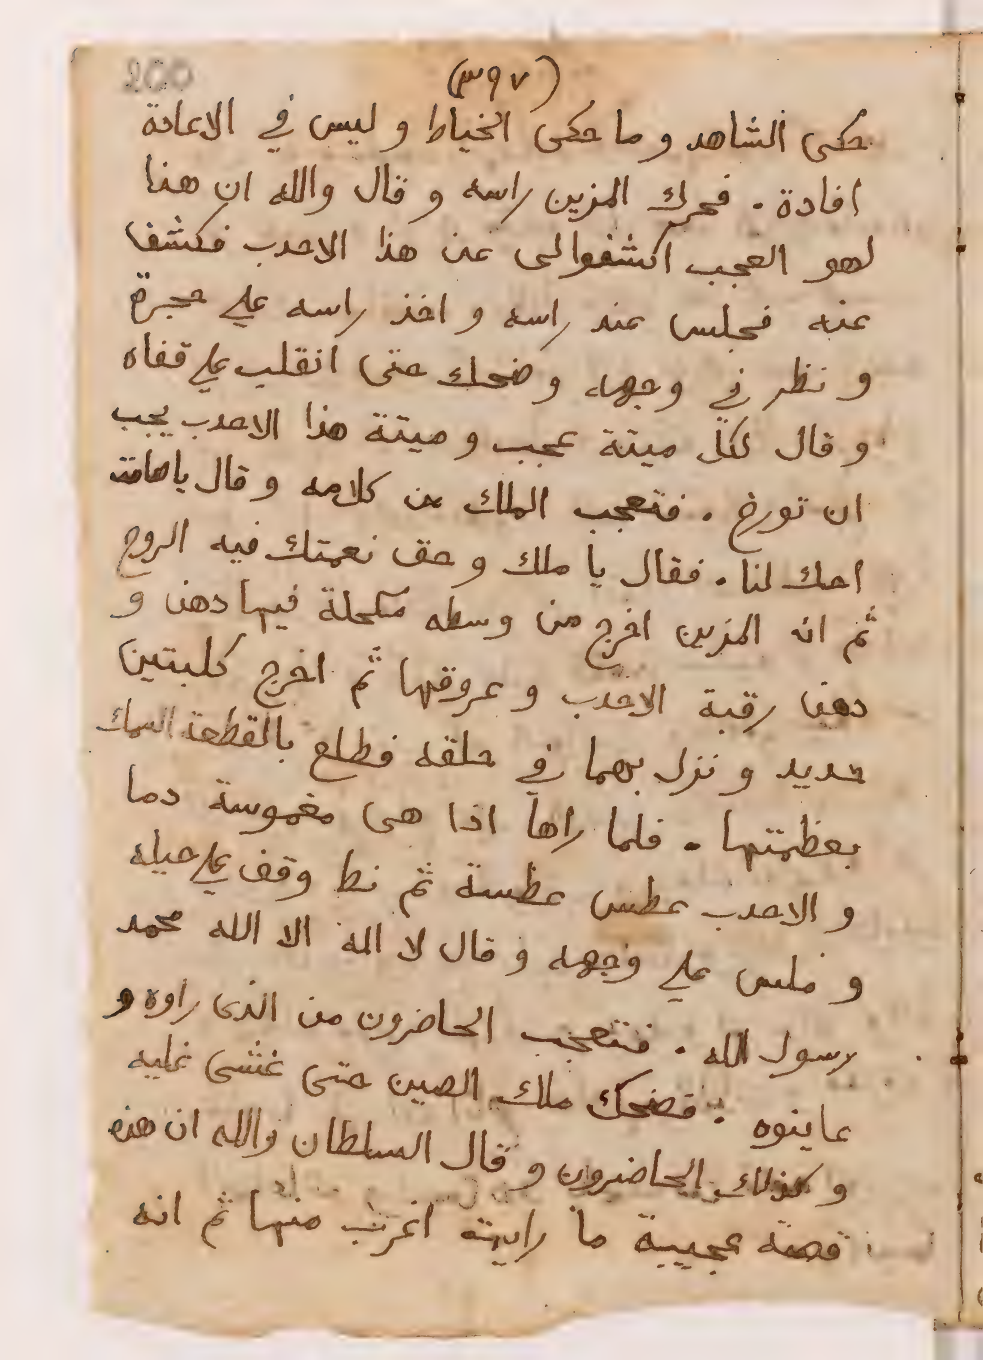 200
(٣٩٧)
حكى الشاهد و ما حكى الخياط و ليس في الاعادة
افادة . فحرك المزين راسه و قال والله ان هذا
لهو العجب اكشفوالى عن هذا الاحدب فكشفا
عنه فجلس عند راسه و اخذ راسه علي حجرة
و نظر في وجهه و ضحك حتى انقلب علي قفاه
و قال لكل ميتة عجب و ميتة هذا الاحدب يجب
ان تورخ . فتعجب الملك من كلامه و قال ياصامت
احك لنا . فقال يا ملك و حق نعمتك فيه الروح
ثم انه المزين اخرج من وسطه مكحلة فيها دهن و
دهن رقبة الاحدب و عروقها ثم اخرج كلبتين
حديد و نزل بهما في حلقه فطلع بالقطعة السمك
بعظمتها . فلما راها اذا هى مغموسة دما
و الاحدب عطس عطسة ثم نط وقف علي حيله
و ملس علي وجهه و قال لا اله الا الله محمد
رسول الله . فتعجب الحاضرون من الذى راوه و
عاينوه . فضحك ملك الصين حتى غشى عليه
و كذلك الحاضرون و قال السلطان والله ان هذه
قصة عجيبة ما رايته اغرب منها ثم انه